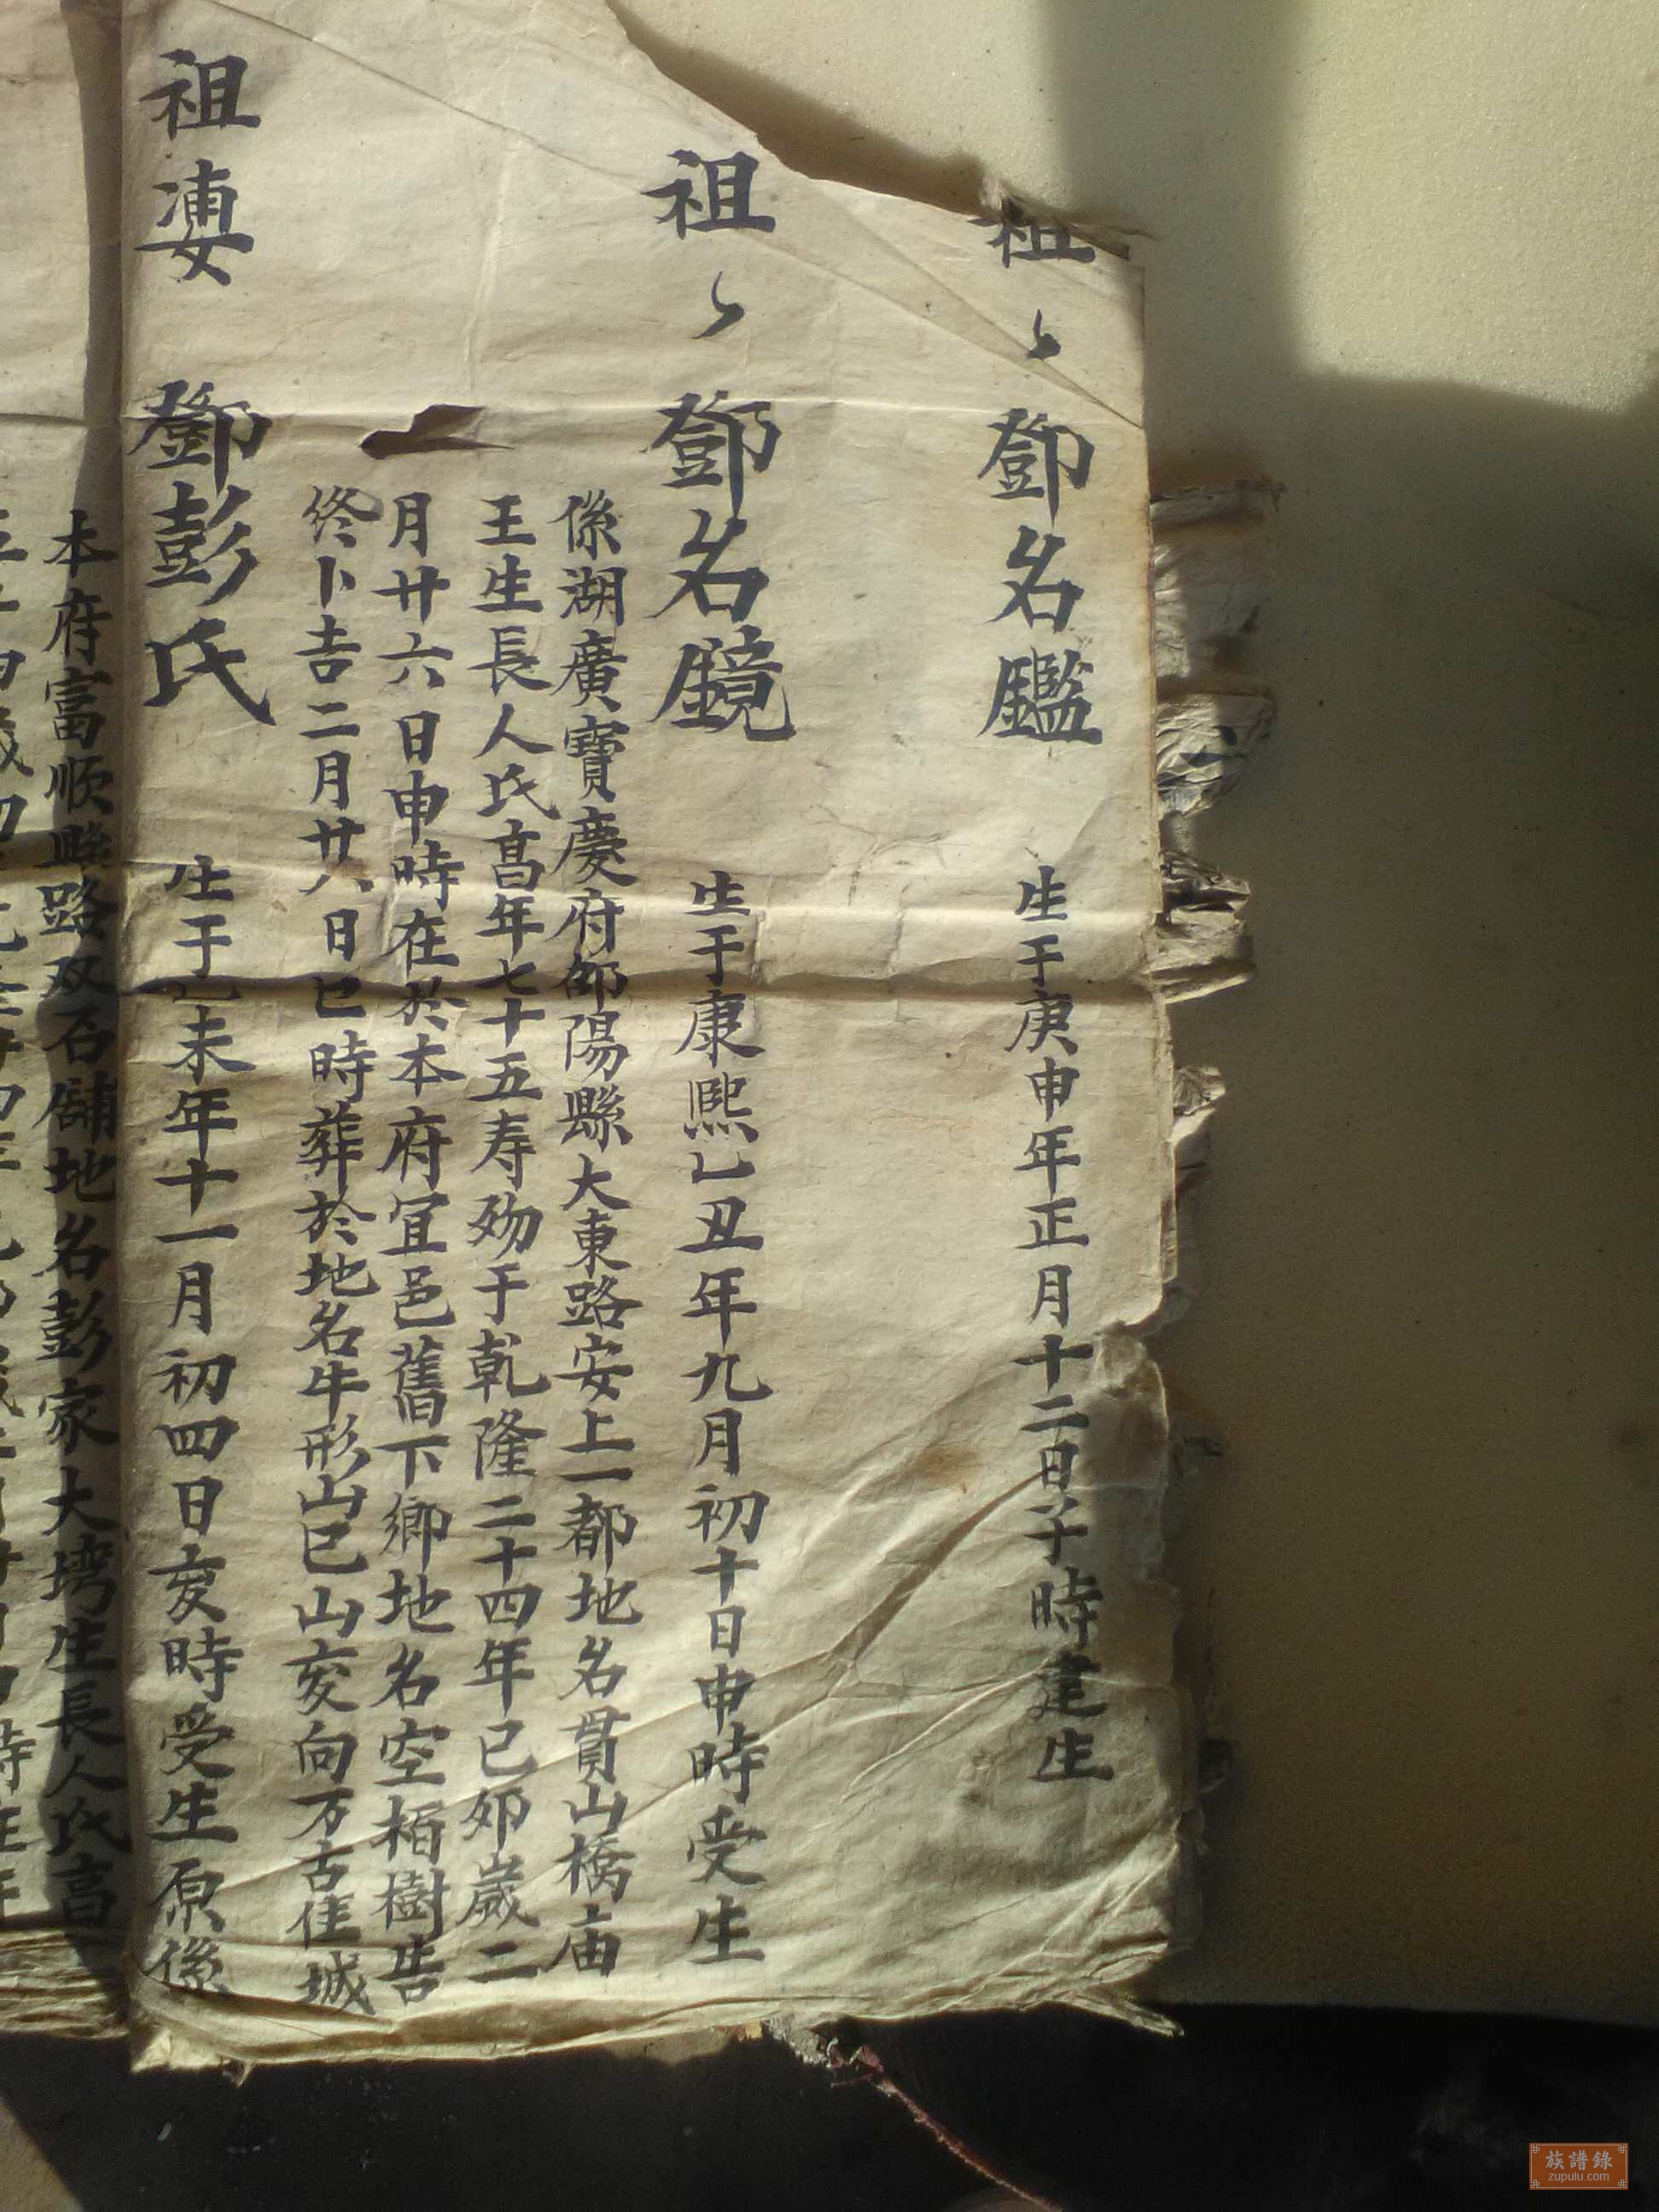 祖〻 鄧名鑑 生于庚申年正月十二日子時建生
祖〻 鄧名鏡 生于康熙乙丑年九月初十日申時受生
係湖廣寶慶府邵陽縣大東路安上一都地名貫山橋庙
王生長人氏髙年七十五寿殁于乾隆二十四年已夘歲二
月廿六日申時在於本府宜邑舊下鄉地名空栢樹告
終卜吉二月廿八日巳時葬於地名牛形山巳山亥向万古佳城
祖婆 鄧彭氏 生于乙未年十一月初四日亥時受生原係
本府富顺縣路双石舖地名彭家大塆生長人氏髙
族譜錄
zupulu.com